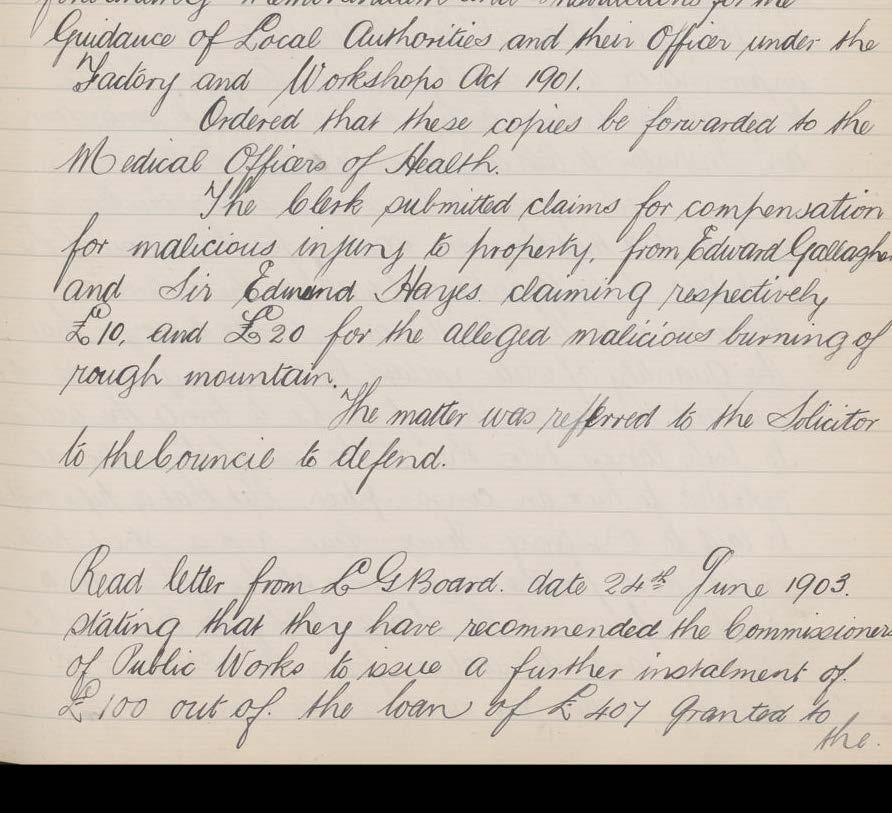 forwarding Memorandum and Instructions for the
Guidance of Local Authorities and their Officer under the
Factory and Workshops Act 1901.
Ordered that these copies be forwarded to the
Medical Officers of Health.
The Clerk submitted claims for compensation
for malicious injury to property, from Edward Gallagher
and Sir Edmund Hayes claiming respectively
£10, and £20 for the alleged malicious burning of
rough mountain.
The matter was referred to the Solicitor
to the Council to defend.
Read letter from L G Board. date 24th June 1903.
stating that they have recommended the Commissioners
of Public Works to issue a further instalment of.
£100 out of. the loan of £407 granted to
the.